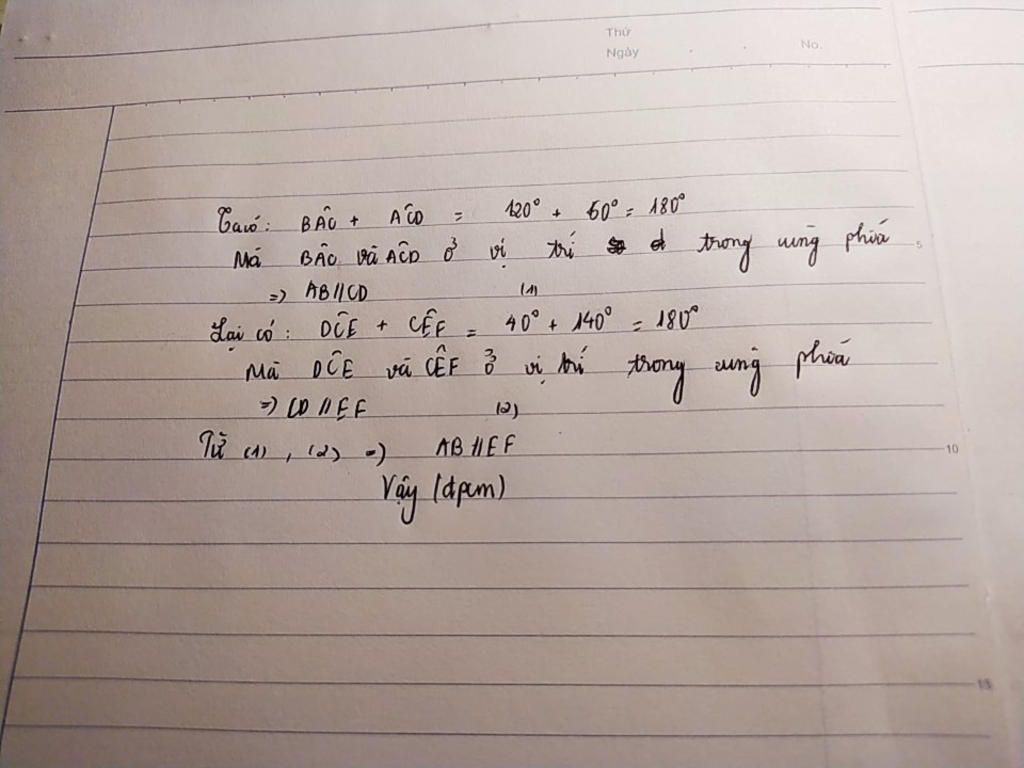 Thứ
Ngày . . No.
Ta có: BÂC + AĈD = 120° + 60° = 180°
Mà BÂC và AĈD ở vị trí trong cùng phía
=> AB//CD (1)
Lại có: DĈE + CÊF = 40° + 140° = 180°
Mà DĈE và CÊF ở vị trí trong cùng phía
=> CD//EF (2)
Từ (1), (2) => AB//EF
Vậy (đpcm)
5
10
15